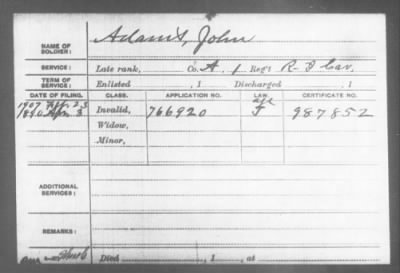 NAME OF SOLDIER: Adams, John
SERVICE: Late rank, Co. A, 1 Reg't R. I Cav.
TERM OF SERVICE: Enlisted , 1 Discharged , 1
DATE OF FILING. CLASS. APPLICATION NO. LAW. CERTIFICATE NO.
1907
1890 Invalid, 766920 J 987852
Widow,
Minor,
ADDITIONAL SERVICES:
REMARKS:
Died , 1 , at